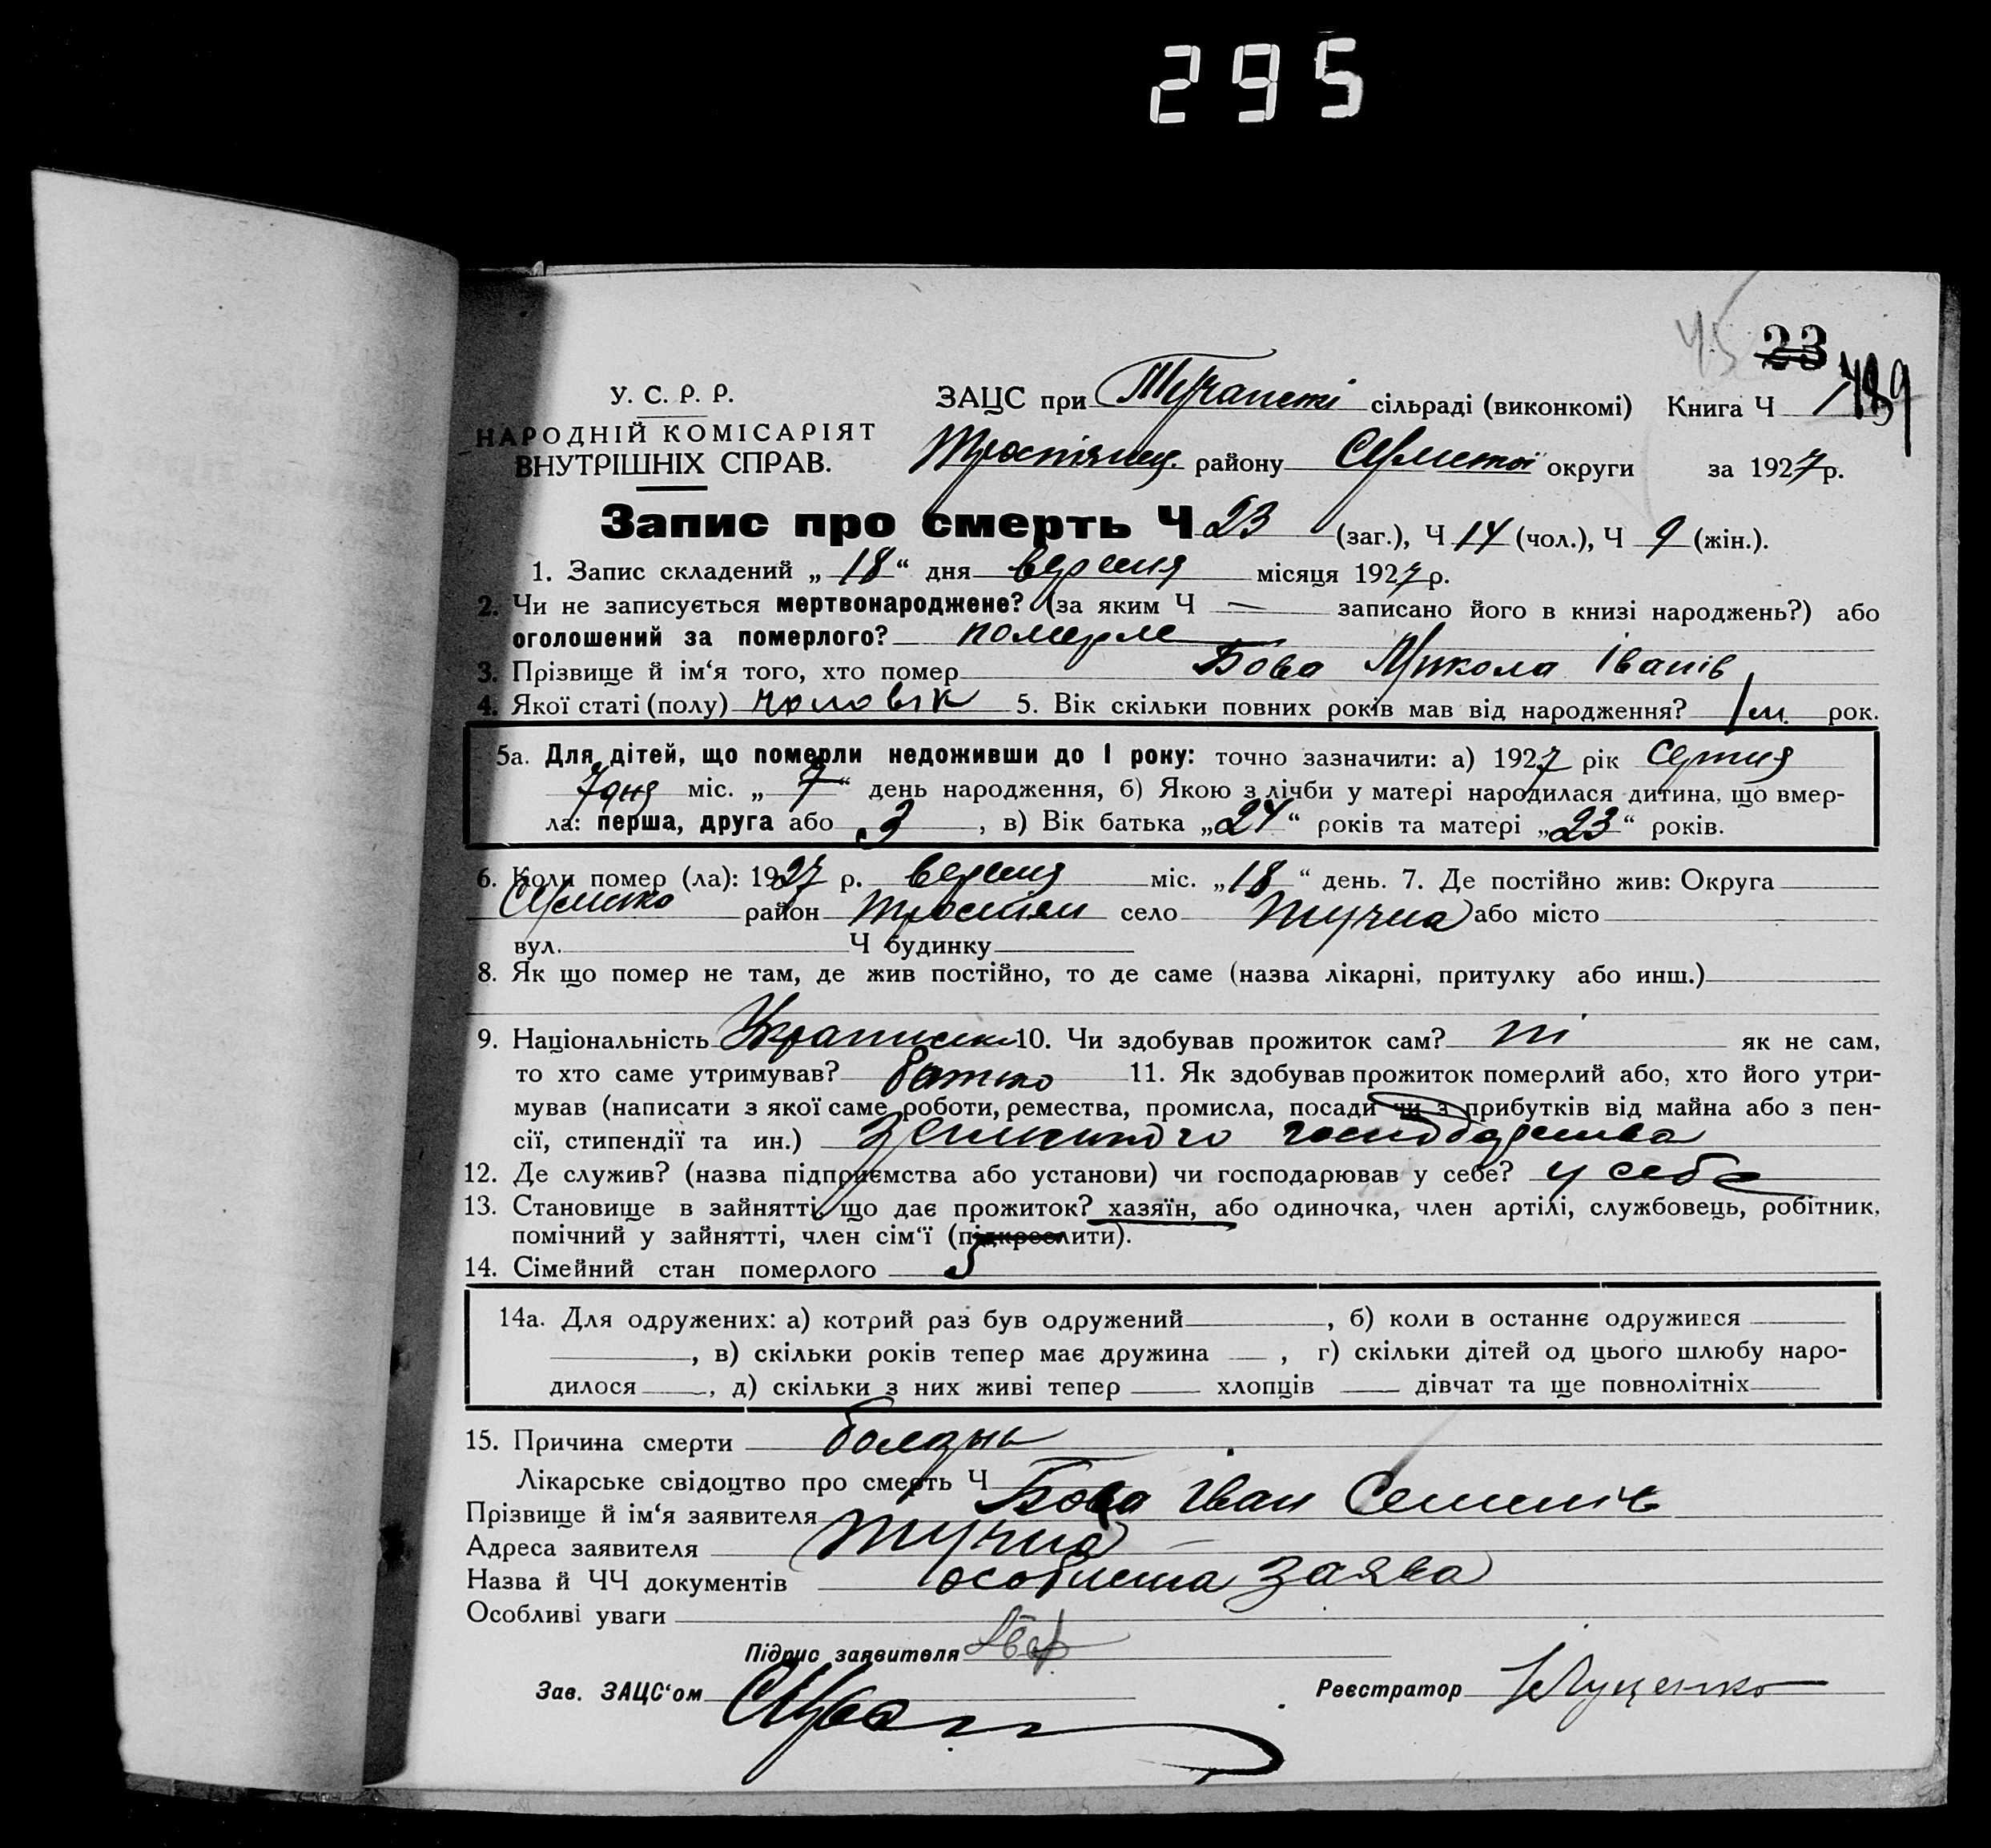 295
23
У. С. Р. Р.
НАРОДНІЙ КОМІСАРІЯТ
ВНУТРІШНІХ СПРАВ.
ЗАЦС при сільраді (виконкомі) Книга Ч
Тростянец. району Сумської округи за 1927 р.
Запис про смерть Ч 23 (заг.), Ч 14 (чол.), Ч 9 (жін.).
1. Запис складений „ 18 “ дня вересня місяця 1927 р.
2. Чи не записується мертвонароджене? (за яким Ч — записано його в книзі народжень?) або
оголошений за померлого? померле
3. Прізвище й ім‘я того, хто помер Бова Микола Іванів
4. Якої статі (полу) чоловік 5. Вік скільки повних років мав від народження? 1 м. рок.
5а. Для дітей, що померли недоживши до 1 року: точно зазначити: а) 1927 рік серпня
7 дня міс. „ 7 “ день народження, б) Якою з лічби у матері народилася дитина, що вмер-
ла: перша, друга або 3 , в) Вік батька „24“ років та матері „23“ років.
6. Коли помер (ла): 1927 р. вересня міс. „18“ день. 7. Де постійно жив: Округа
Сумська район Тростян село Тучна або місто
вул. Ч будинку
8. Як що помер не там, де жив постійно, то де саме (назва лікарні, притулку або инш.)
9. Національність 10. Чи здобував прожиток сам? ні як не сам,
то хто саме утримував? батько 11. Як здобував прожиток померлий або, хто його утри-
мував (написати з якої саме роботи, ремества, промисла, посади чи з прибутків від майна або з пен-
сії, стипендії та ин.) з сільського господарства
12. Де служив? (назва підприємства або установи) чи господарював у себе? у себе
13. Становище в зайнятті, що дає прожиток? хазяїн, або одиночка, член артілі, службовець, робітник,
помічний у зайнятті, член сім‘ї (підкреслити).
14. Сімейний стан померлого 5
14а. Для одружених: а) котрий раз був одружений , б) коли в останнє одружився
, в) скільки років тепер має дружина , г) скільки дітей од цього шлюбу наро-
дилося , д) скільки з них живі тепер хлопців дівчат та ще повнолітніх
15. Причина смерти болезнь
Лікарське свідоцтво про смерть Ч
Прізвище й ім‘я заявителя Бова Іван Семенів
Адреса заявителя Тучна
Назва й ЧЧ документів особиста заява
Особливі уваги
Підпис заявителя
Зав. ЗАЦС‘ом
Реєстратор Луценко